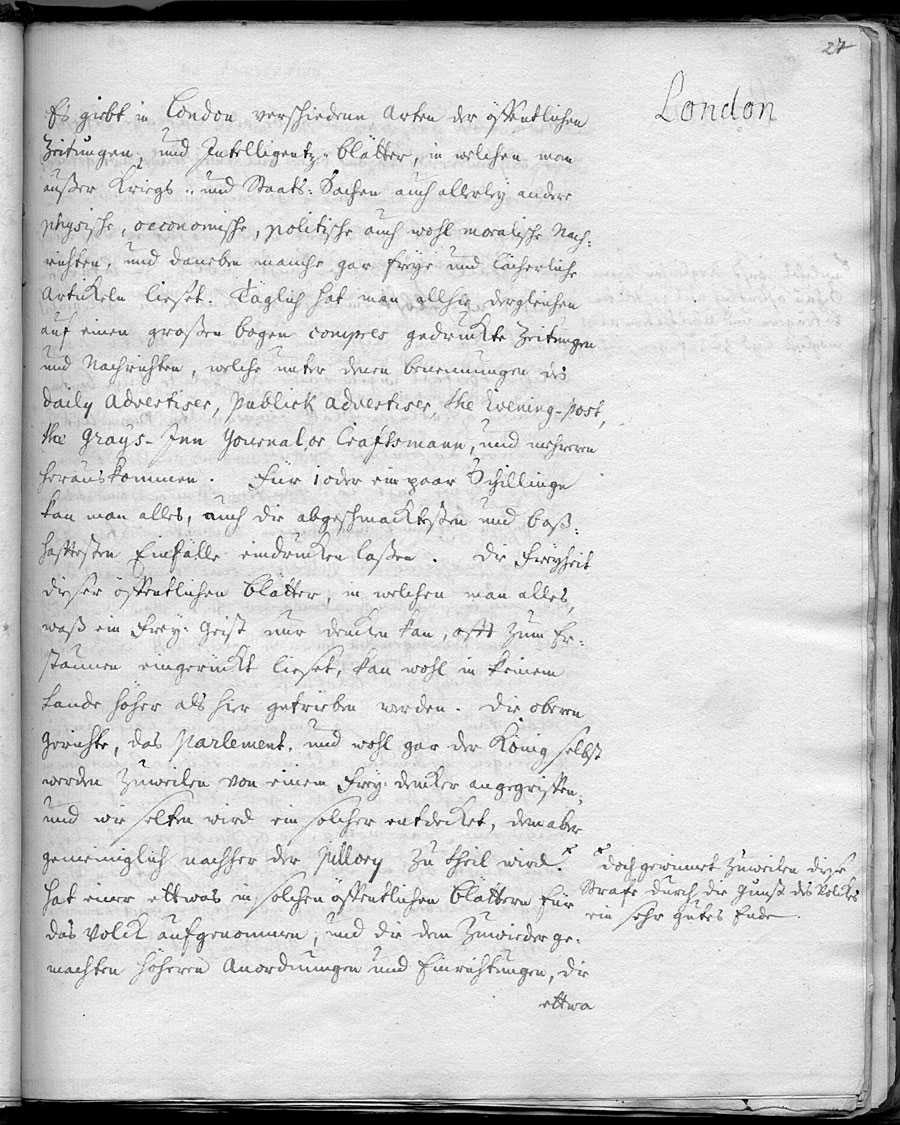 27
London
Es giebt in London verschiedene Arten der öffentlichen
Zeitungen, und Intelligentz-blätter, in welchen man
außer Kriegs- und Staats-Sachen auch allerley andere
physische, oeconomische, politische auch wohl moralische Nach-
richten, und daneben manche gar freye und lächerliche
Artickeln lieset. Täglich hat man allhie dergleichen
auf einen großen bogen compres gedruckte Zeitungen
und Nachrichten, welche unter denen benennungen des
daily Advertiser, publick Advertiser, the Evening-post,
the Grays-Inn Journal or Craftsmann, und mehreren
herauskommen. Für 1 oder ein paar Schillinge
kan man alles, auch die abgeschmacktesten und boß-
hafftesten Einfälle eindrucken laßen. Die Freyheit
dieser öffentlichen blätter, in welchen man alles,
waß ein Frey-Geist nur dencken kan, offt zum Er-
staunen eingerückt lieset, kan wohl in keinem
Lande höher als hier getrieben werden. Die obern
Gerichte, das Parlement, und wohl gar der König selbst
werden zuweilen von einem Frey-dencker angegriffen,
und wie selten wird ein solcher entdecket, dem aber
gemeiniglich nachher der pillory zu theil wird.*
hat einer ettwas in solchen öffentlichen blättern für
das Volck aufgenommen, und die dem zuwieder ge-
machten höheren Anordnungen und Einrichtungen, die
ettwa
* doch gewinnet zuweilen diese
Strafe durch die Gunst des Volckes
ein sehr gutes Ende.